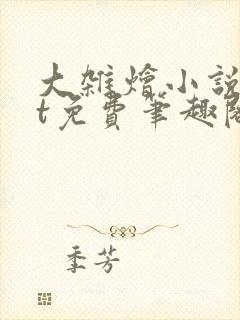 大雜燴小説
t免費筆趣閣
季芳